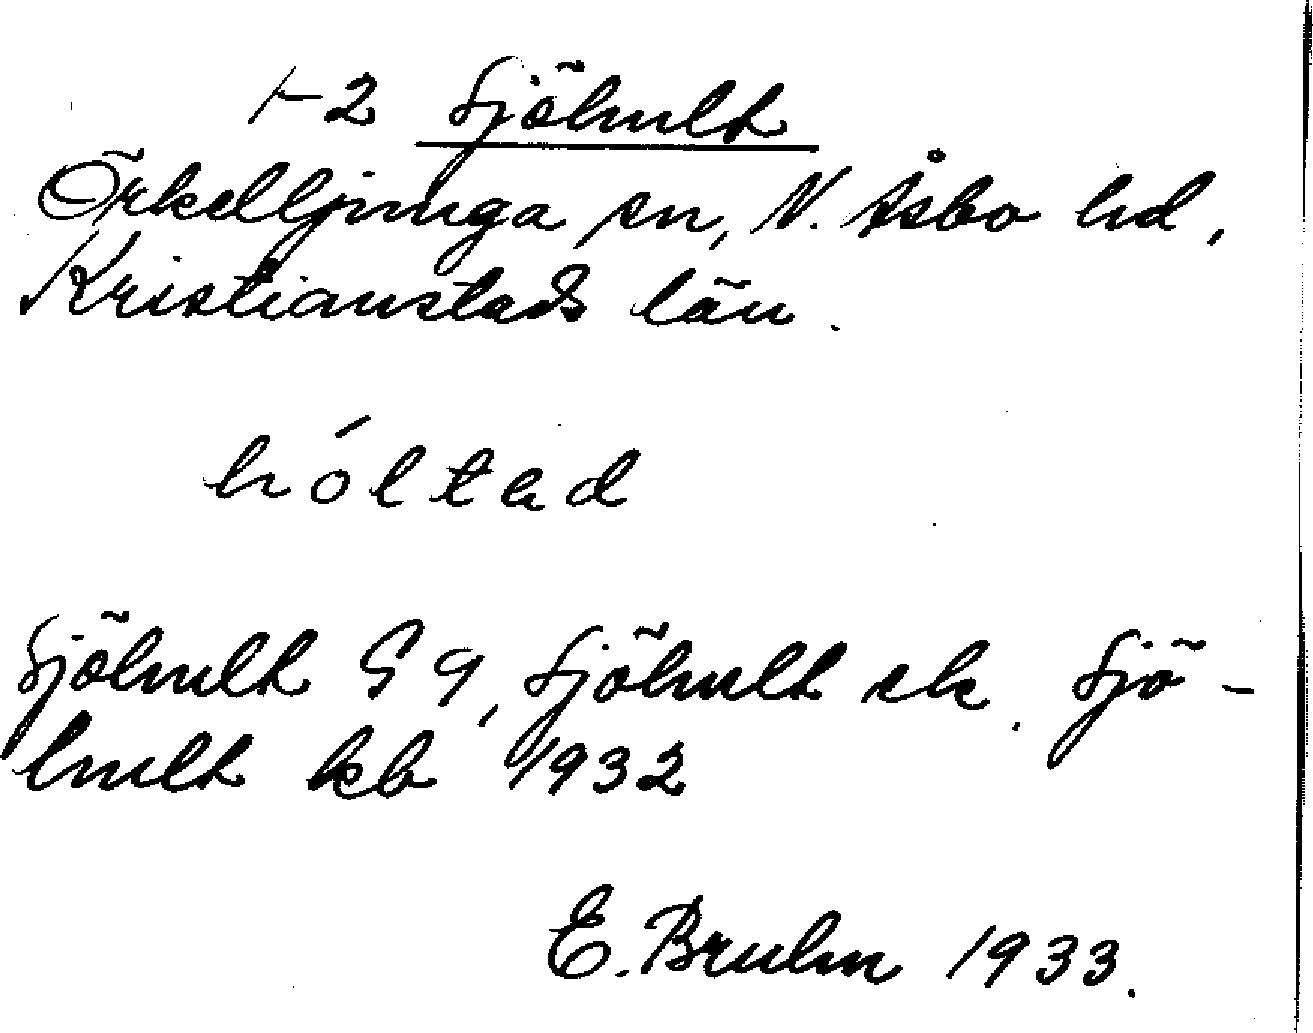 1-2 Sjöhult
Örkelljunga sn, N. Åsbo hd,
Kristianstads län.
hóltad
Sjöhult G 9, Sjöhult sk. Sjö-
hult kb 1932
E. Bruhn 1933.